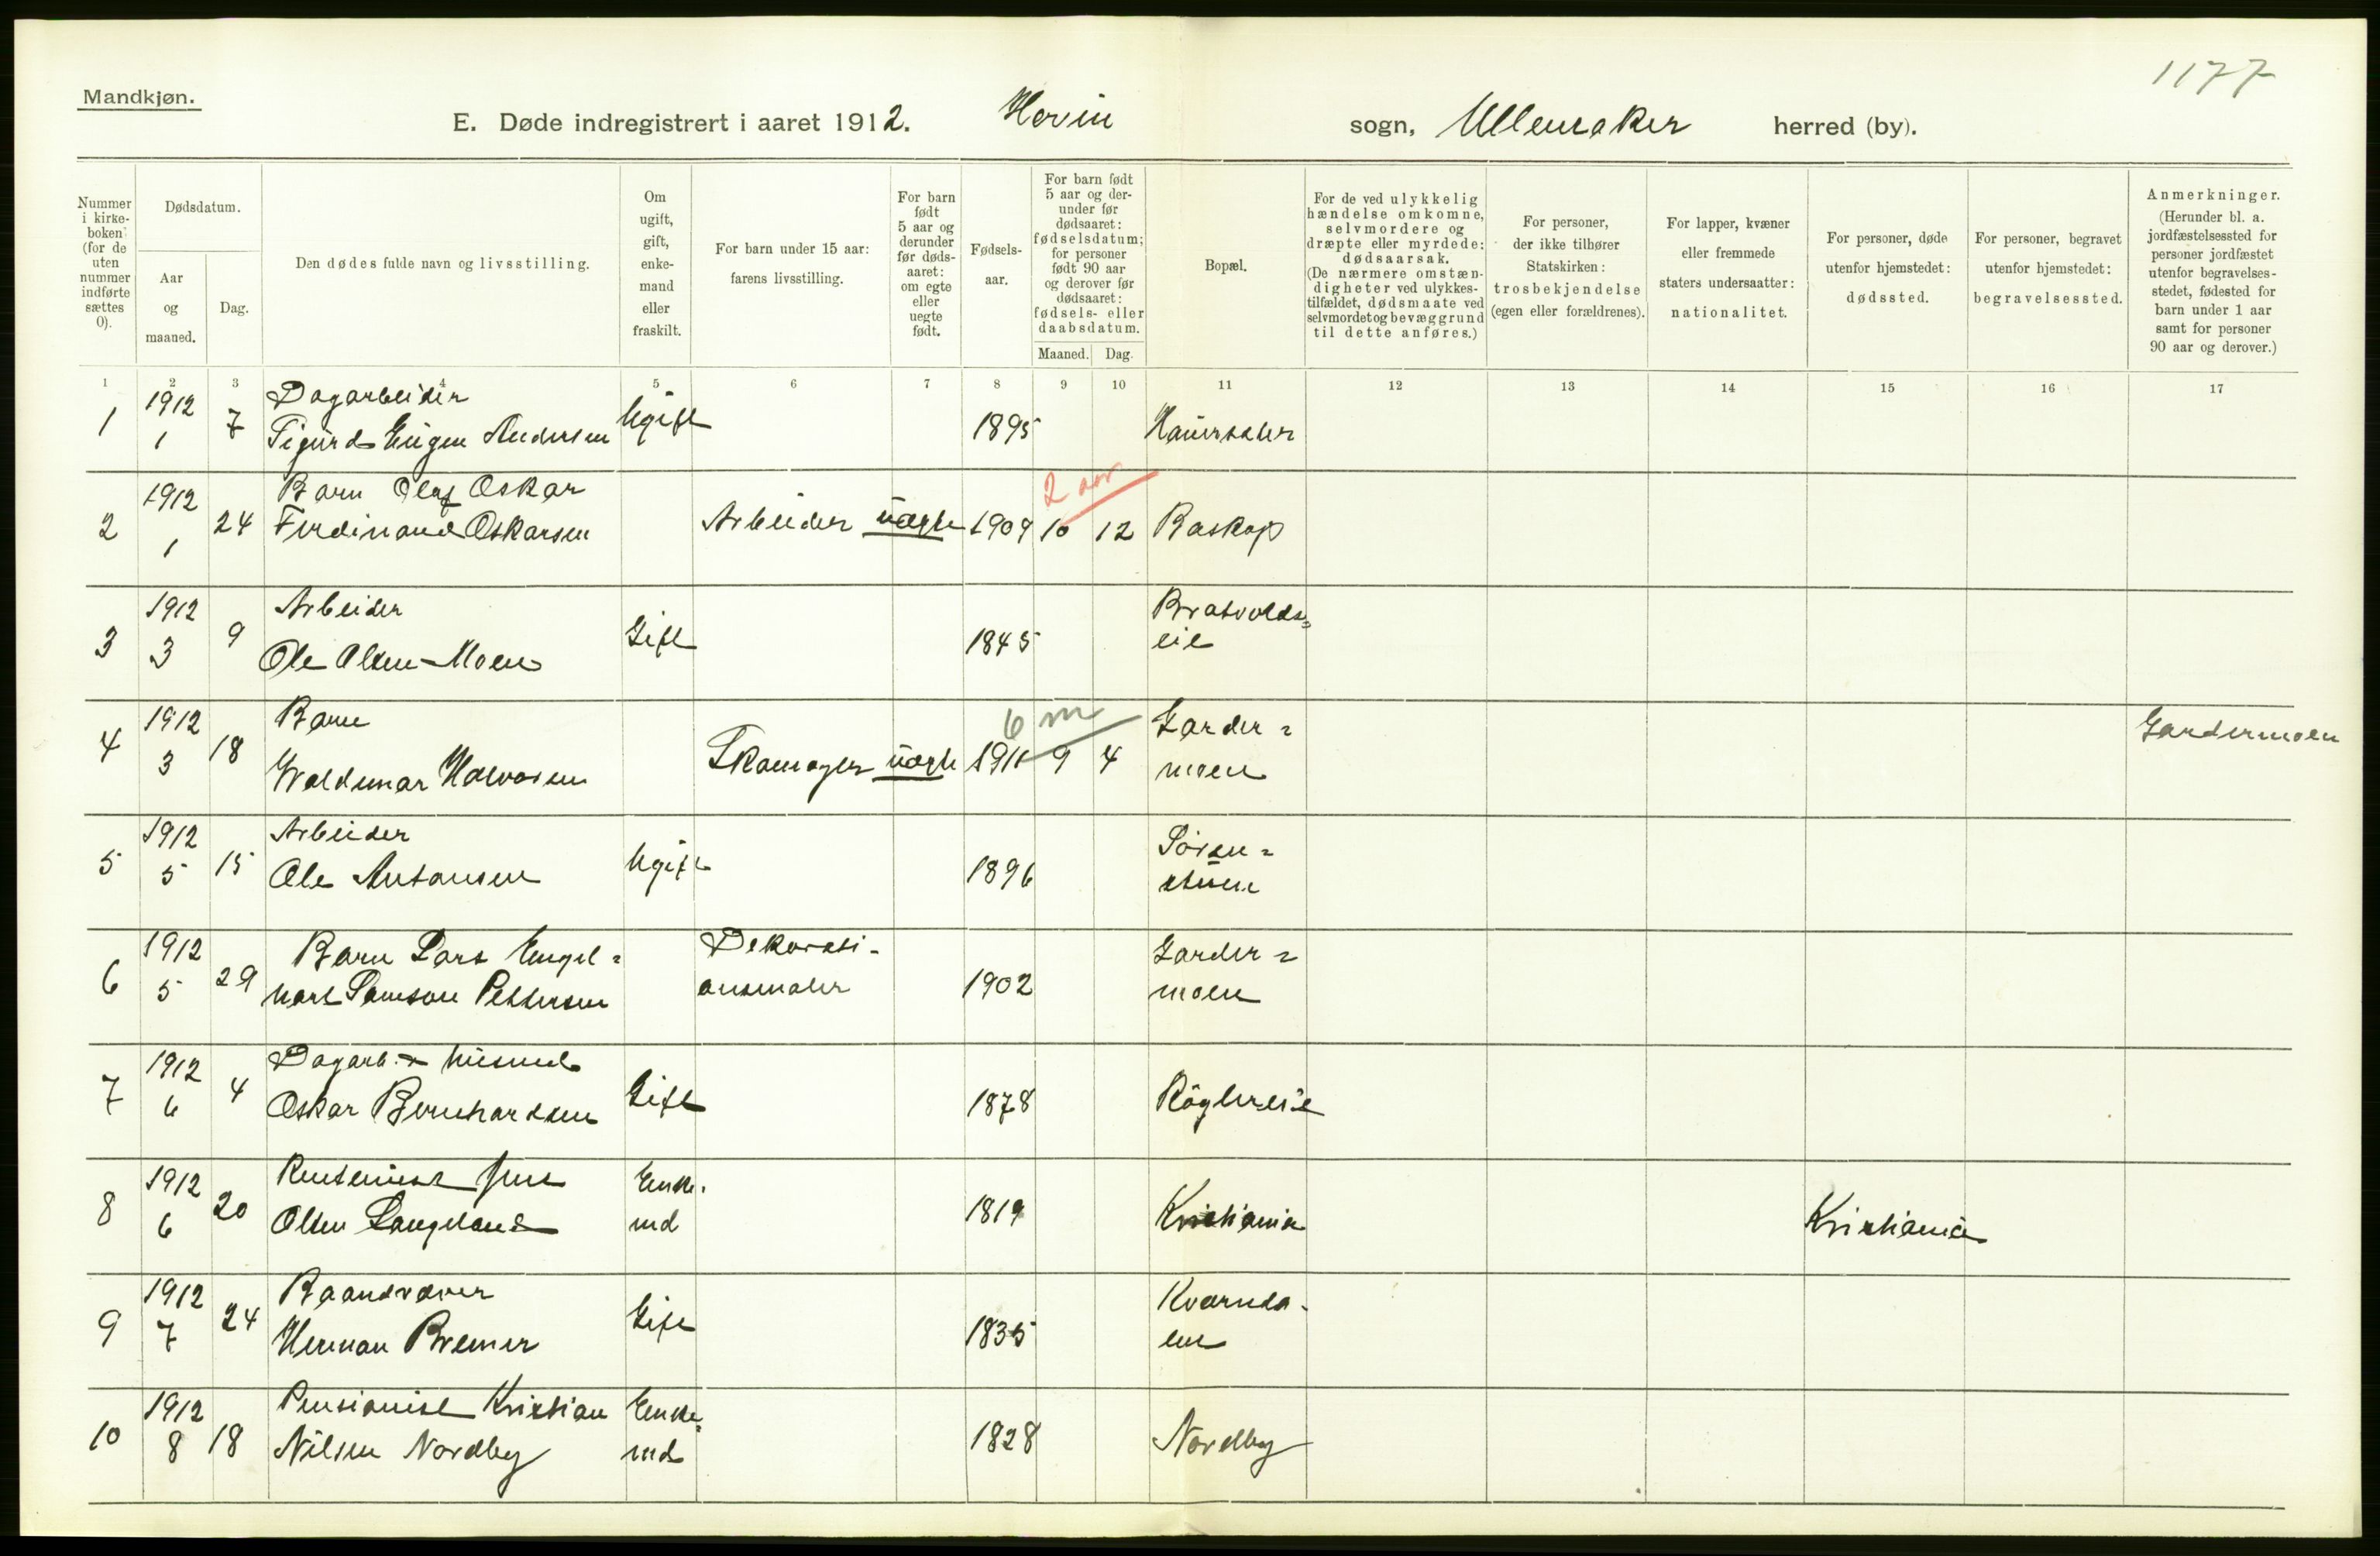 1177
Mandkjøn.
E. Døde indregistrert i aaret 1912. Hovin sogn, Ullensaker herred (by).
Nummer i kirkeboken (for de uten nummer indførte sættes 0).
Dødsdatum.
Aar og maaned.
Dag.
Den dødes fulde navn og livsstilling.
Om ugift, gift, enkemand eller fraskilt.
For barn under 15 aar: farens livsstilling.
For barn født 5 aar og derunder før dødsaaret: om egte eller uegte født.
Fødselsaar.
For barn født 5 aar og derunder før dødsaaret: fødselsdatum; for personer født 90 aar og derover før dødsaaret: fødsels- eller daabsdatum.
Maaned. Dag.
Bopæl.
For de ved ulykkelig hændelse omkomne, selvmordere og dræpte eller myrdede: dødsaarsak. (De nærmere omstændigheter ved ulykkestilfældet, dødsmaate ved selvmordet og bevæggrund til dette anføres.)
For personer, der ikke tilhører Statskirken: trosbekjendelse (egen eller forældrenes).
For lapper, kvæner eller fremmede staters undersaatter: nationalitet.
For personer, døde utenfor hjemstedet: dødssted.
For personer, begravet utenfor hjemstedet: begravelsessted.
Anmerkninger. (Herunder bl. a. jordfæstelsessted for personer jordfæstet utenfor begravelsesstedet, fødested for barn under 1 aar samt for personer 90 aar og derover.)
1 2 3 4 5 6 7 8 9 10 11 12 13 14 15 16 17
1 1912 1 7 Dagarbeider Sigurd Eugen Andersen Ugift 1895
2 1912 1 24 Barn Olaf Oskar Ferdinand Oskarsen Arbeider uægte 1909 10 12 2 aar Raskop
3 1912 3 9 Arbeider Ole Olsen Moen Gift 1845 Bratvolds= eie
4 1912 3 18 Barn Waldemar Halvorsen Skomager uægte 1911 9 4 6 m Garder= moen Gardermoen
5 1912 5 15 Arbeider Ole Antonsen Ugift 1896 Sören= stuen
6 1912 5 29 Barn Lars Engel= hart Samson Pettersen Dekorati- onsmaler 1902 Garder= moen
7 1912 6 4 Dagarb. & husmd Oskar Bernhardsen Gift 1878 Röglereie
8 1912 6 20 Rentenist Jens Olsen Langeland Enke- md 1819 Kristiania Kristiania
9 1912 7 24 Baandvæver Herman Bremer Gift 1835 Kvernda- len
10 1912 8 18 Pensionist Kristian Nilsen Nordby Enke= md 1828 Nordby